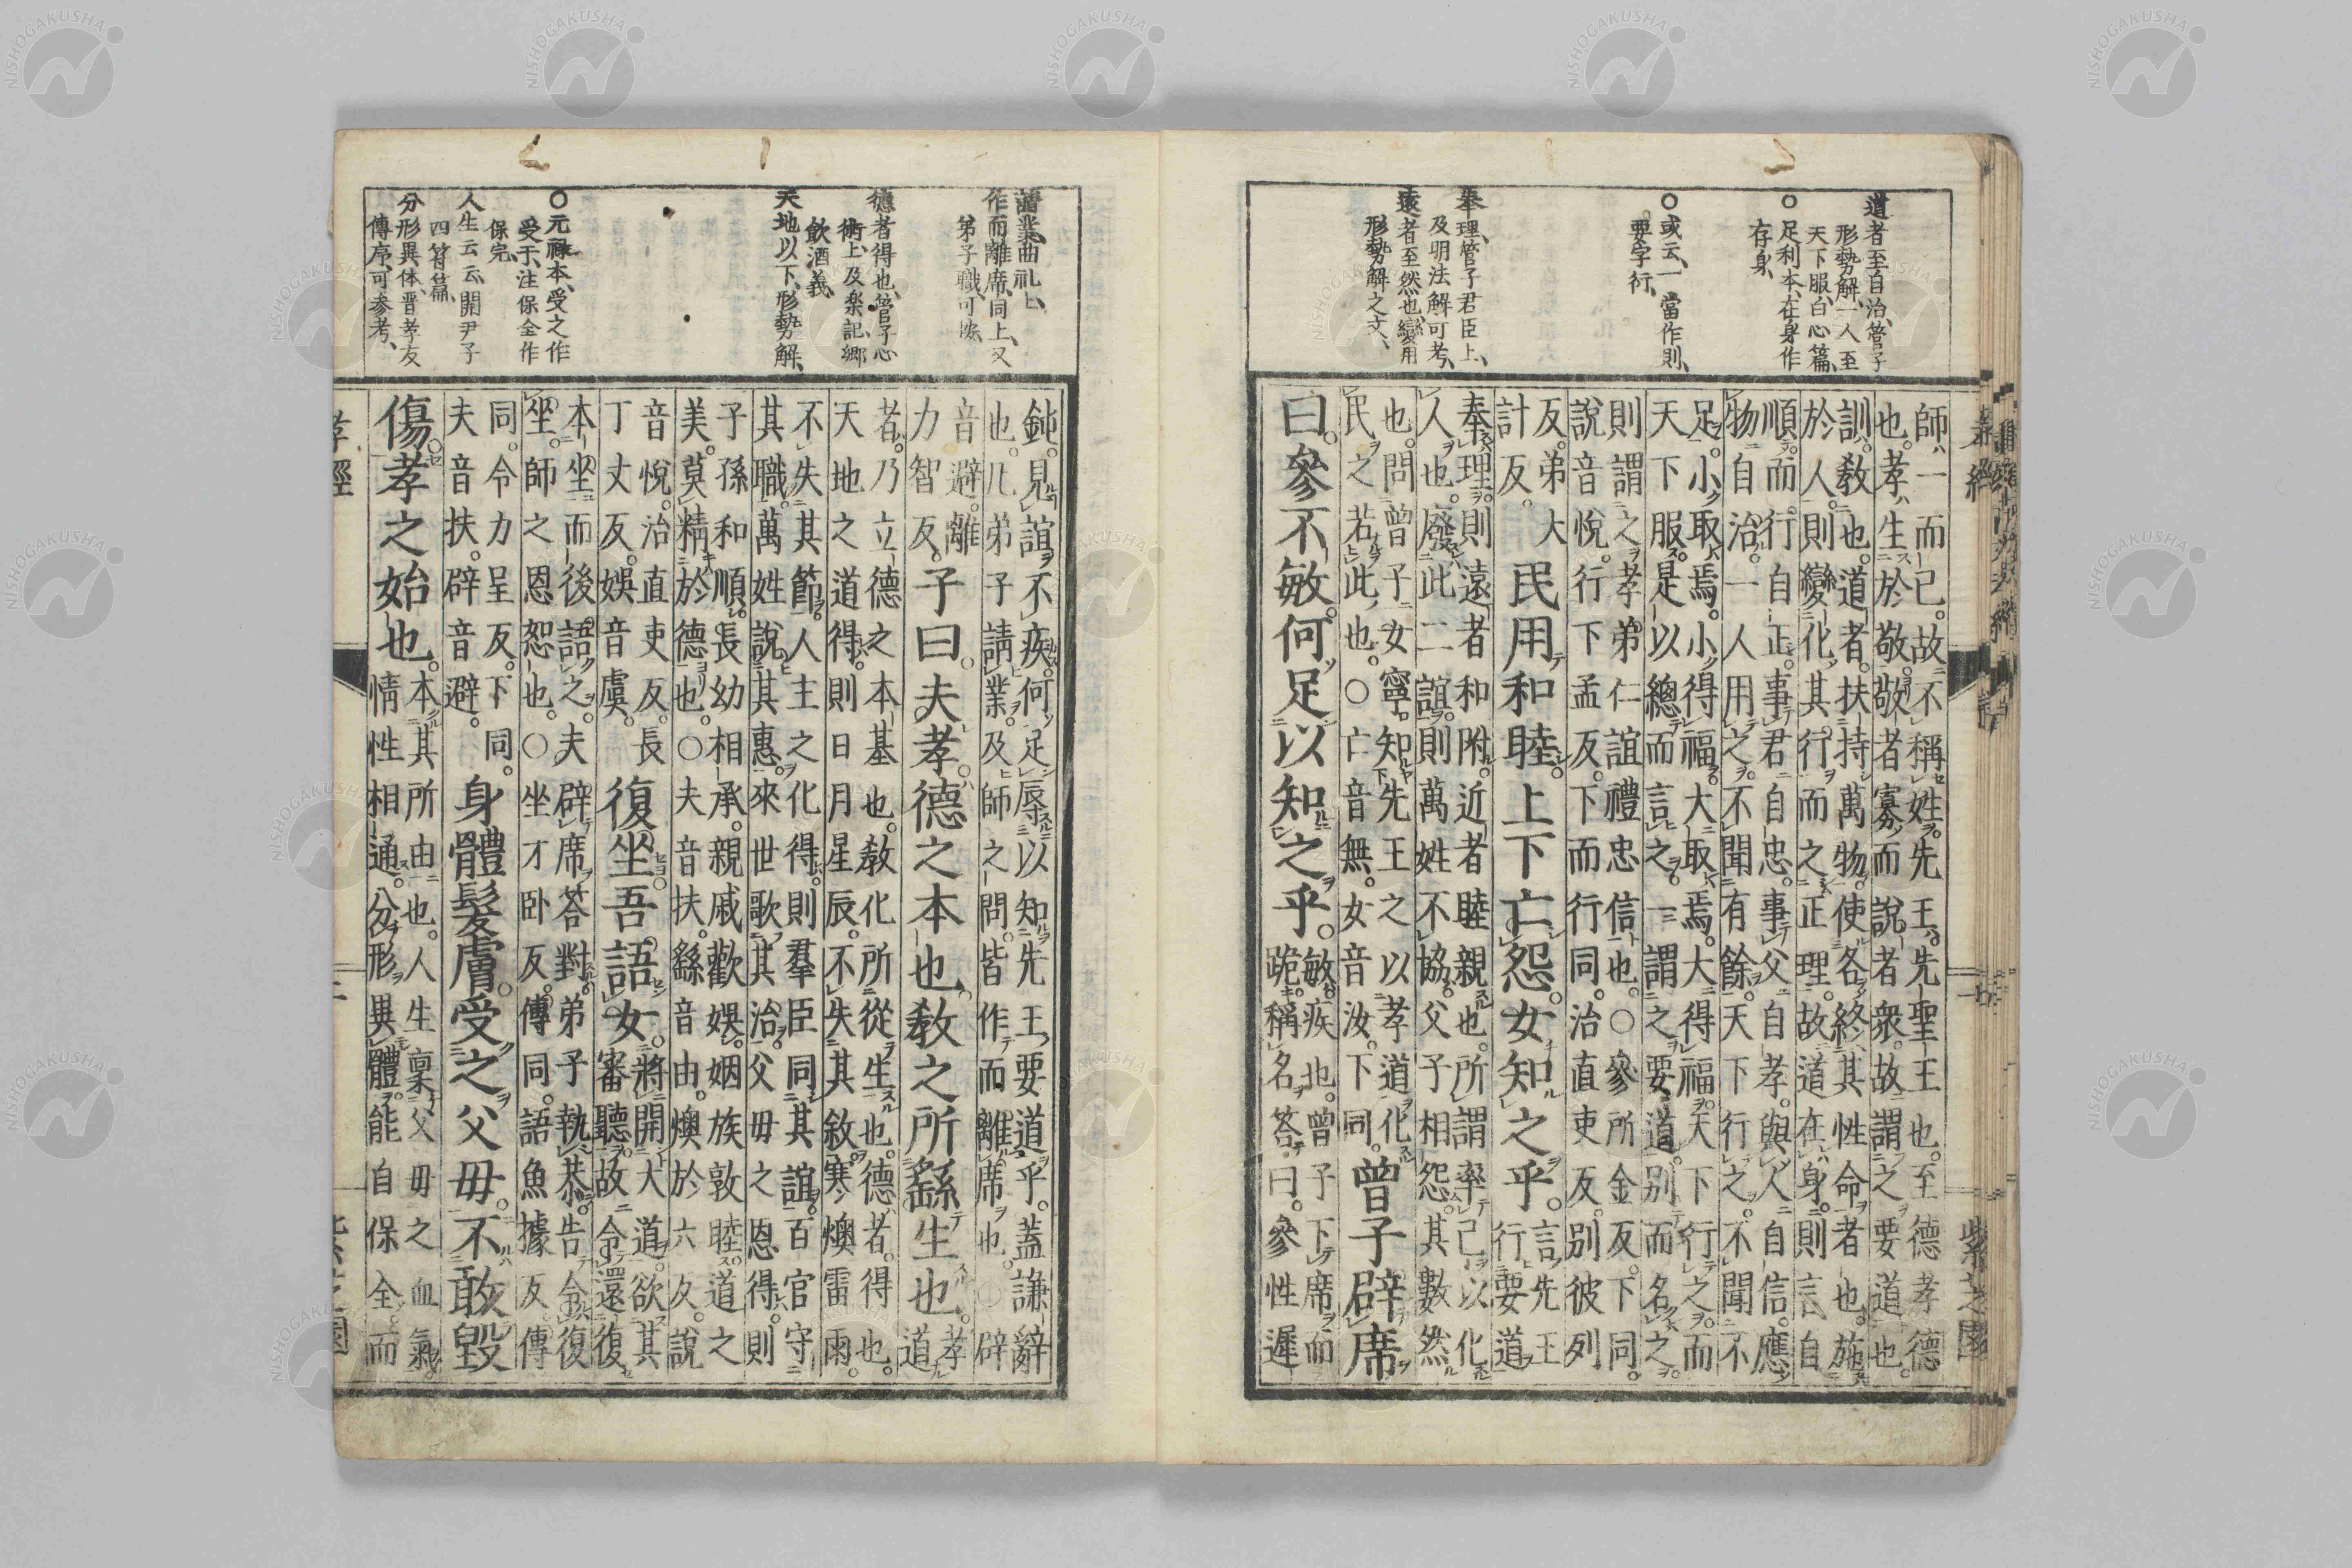 道者至自治、管子
形勢解、一人至
天下服、白心篇、
○足利本、在身作
存身、
○或云、一當作則、
要字行、
奉理、管子君臣上、
及明法解可考、
遠者至然也、變用
形勢解之文、
孝經
紫芝園
師一而已。故不稱姓。先王。先聖王也。至德孝德
也。孝生於敬。敬者寡而說者衆。故謂之要道也。
訓。教也。道者。扶持萬物。使各終其性命者也。施
於人。則變化其行而之正理。故道在身。則言自
順。而行自正。事君自忠。事父自孝。與人自信。應
物自治。一人用之。不聞有餘。天下行之。不聞不
足。小取焉。小得福。大取焉。大得福。天下行之。而
天下服。是以總而言之。一謂之要道。别而名之。
則謂之孝弟仁誼禮忠信也。○參所金反。下同。
說音悅。行下孟反。下而行同。治直吏反。别彼列
反。弟大
計反。
民用和睦。上下亡怨。女知之乎。
言先王
行要道
奉理。則遠者和附。近者睦親也。所謂率己以化
人也。廢此二誼。則萬姓不協。父子相怨。其數然
也。問曾子女寧。知先王之以孝道化
民之若此也。○亡音無。女音汝。下同。
曾子辟席
曰。參不敏。何足以知之乎。
敏疾也。曾子下席而
跪。稱名荅曰。參性遲
請業、曲礼上、
作而離席、同上、又
弟子職、可按
德者得也、管子心
術上、及楽記郷
飲酒義、
天地以下、形勢解、
○元禄本、受之作
受于、注保全作
保完、
人生云云、關尹子
四符篇、
分形異体、晋孝友
傳序、可参考、
鈍。見誼不疾。何足辱以知先王要道乎。蓋謙辭
也。凡弟子請業。及師之問。皆作而離席也。○辟
音避。離
力智反。
子曰。夫孝。德之本也。教之所繇生也。
孝
道
者。乃立德之本基也。教化所從生也。德者。得也。
天地之道得。則日月星辰。不失其敘。寒燠雷雨。
不失其節。人主之化得。則羣臣同其誼。百官守
其職。萬姓說其惠。來世歌其治。父毋之恩得。則
子孫和順。長幼相承。親戚歡娛。姻族敦睦。道之
美。莫精於德也。○夫音扶。繇音由。燠於六反。說
音悅。治直吏反。長
丁丈反。娛音虞。
復坐。吾語女。
將開大道。欲其
審聽。故令還復
本坐而後語之。夫辟席荅對。弟子執恭。告令復
坐。師之恩恕也。○坐才卧反。傳同。語魚據反。傳
同。令力呈反。下同。
夫音扶。辟音避。
身體髮膚。受之父毋。不敢毀
傷。孝之始也。
本其所由也。人生稟父毋之血氣。
情性相通。分形異體。能自保全。而
孝經